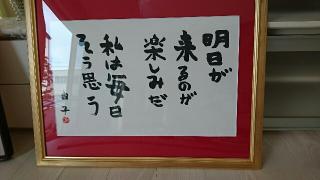 明日が
来るのが
楽しみだ
私は毎日
そう思う